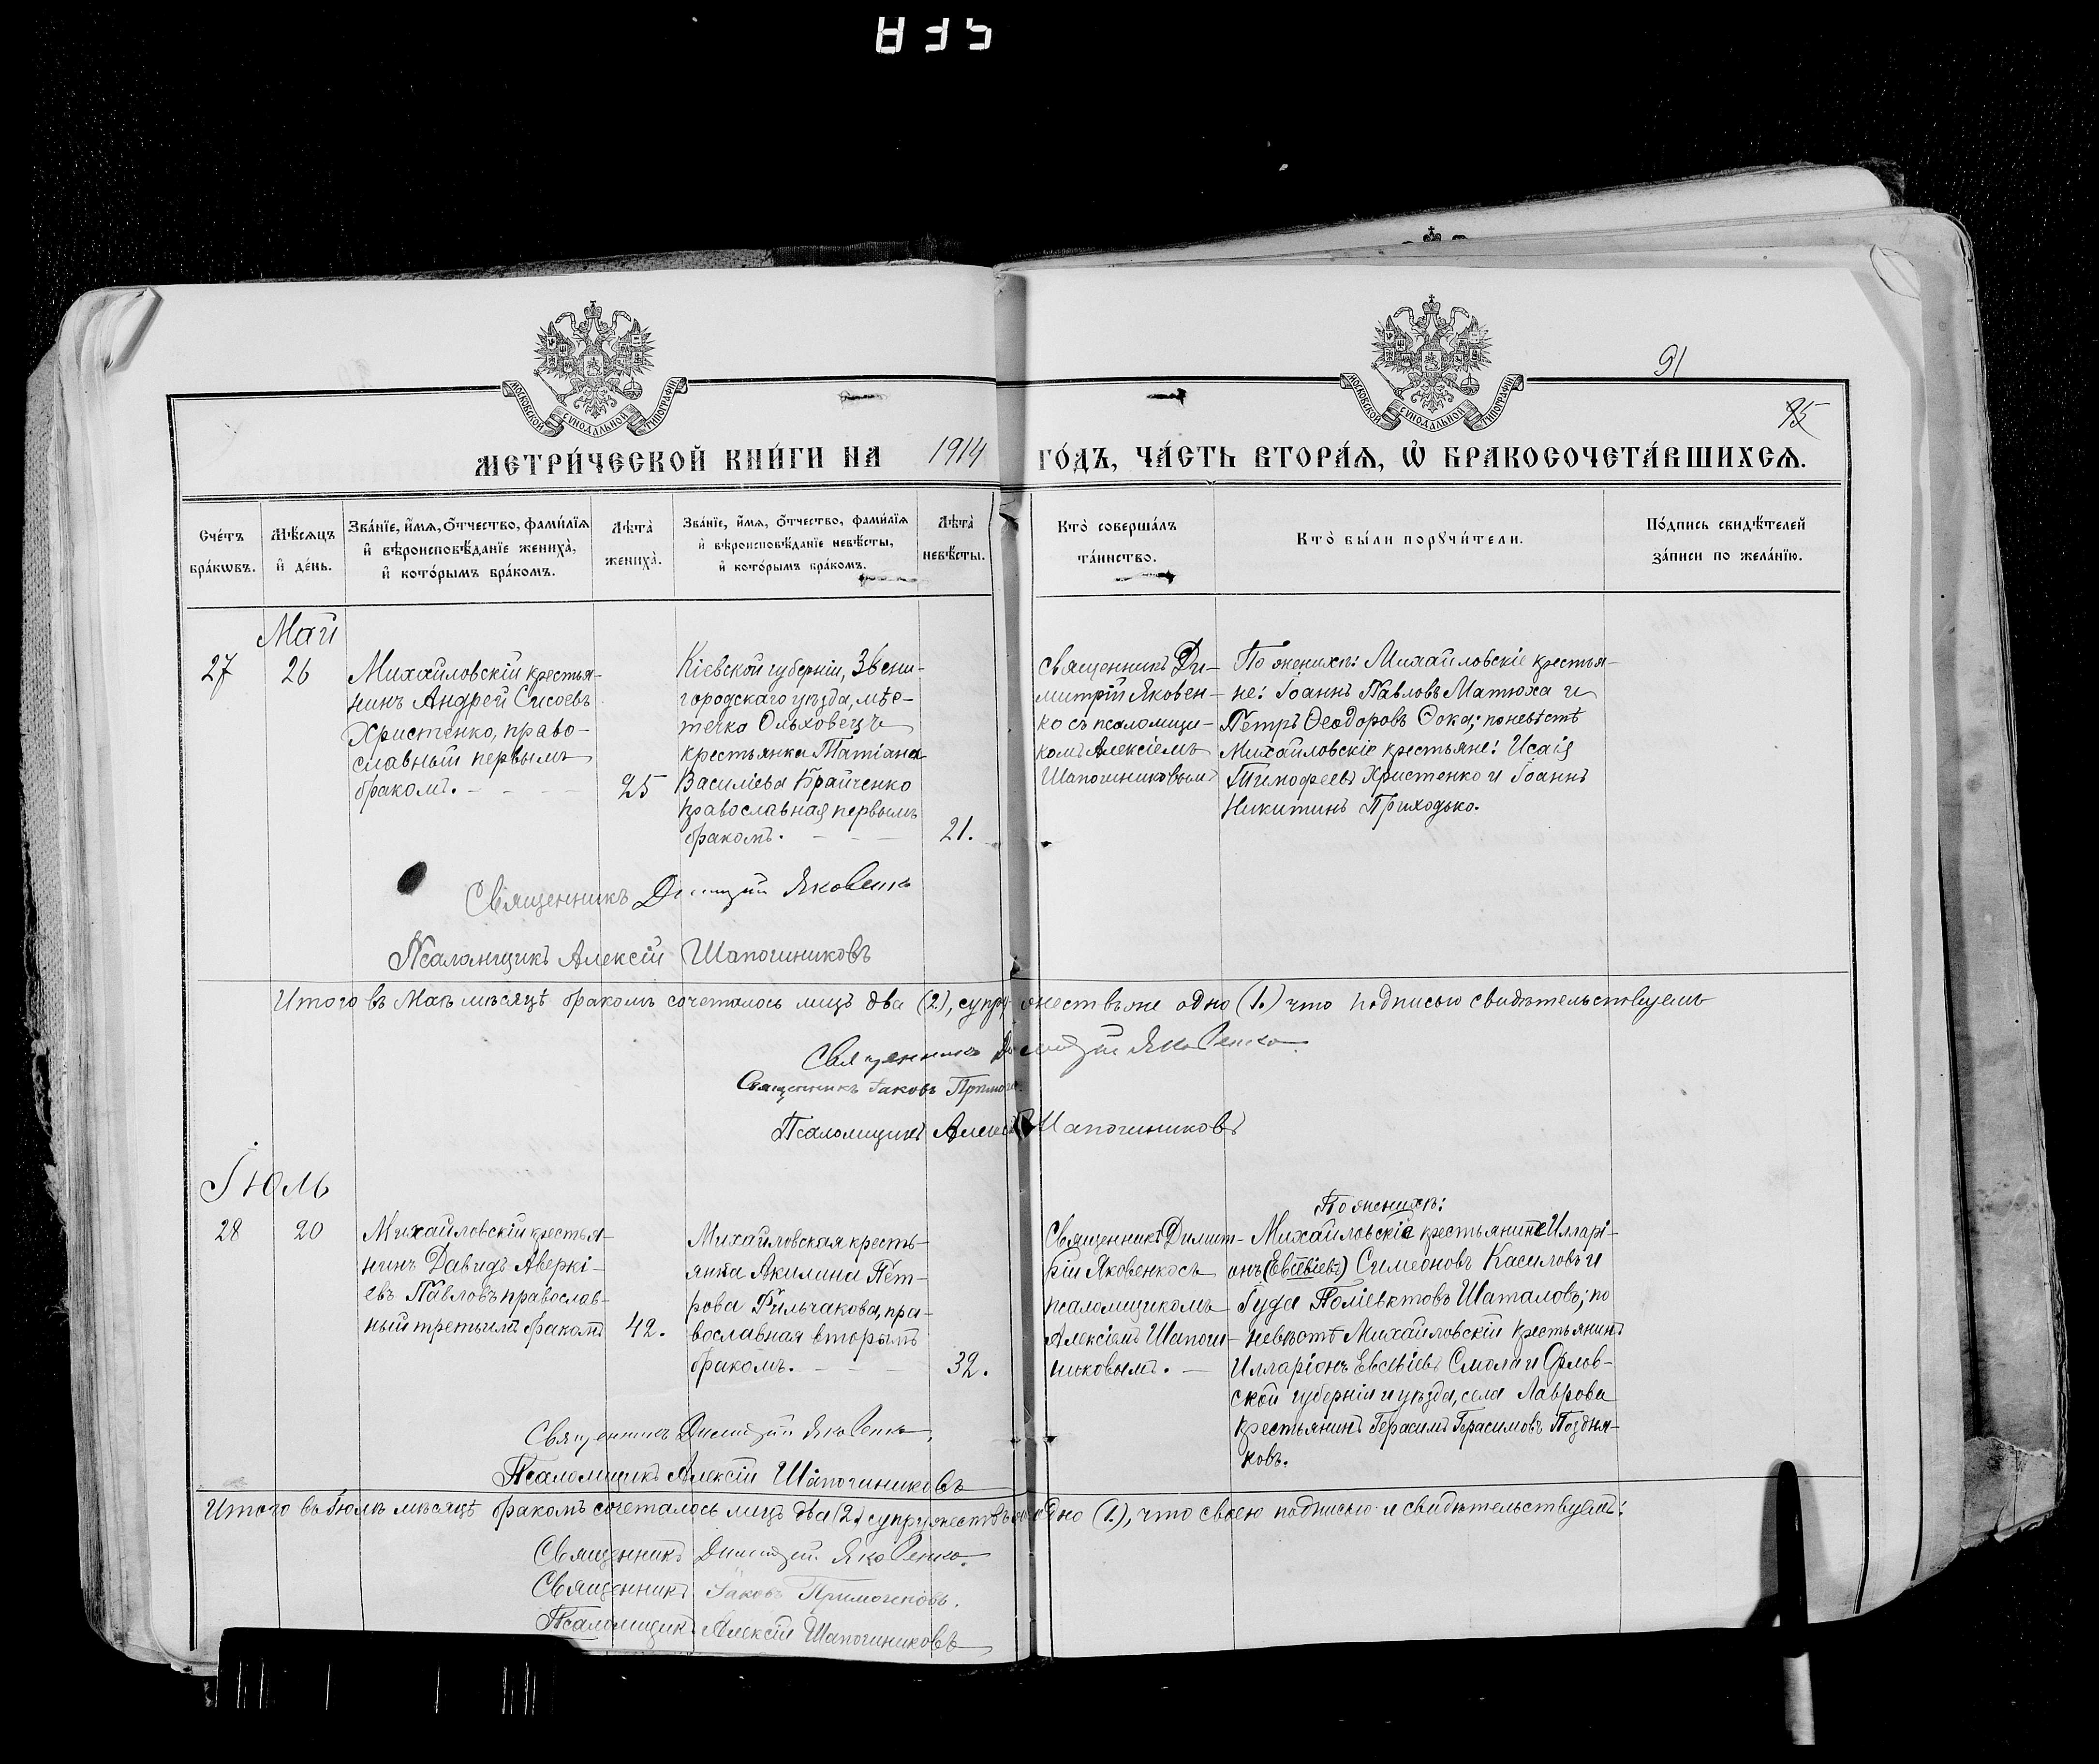 91
95
МОСКОВСКОЙ СУНОДАЛЬНОЙ ТИПОГРАФІИ
МОСКОВСКОЙ СУНОДАЛЬНОЙ ТИПОГРАФІИ
МЕТРИ́ЧЕСКОЙ КНИ́ГИ НА 1914 ГО́ДЪ, ЧА́СТЬ ВТОРА́Я, Ѡ БРАКОСОЧЕТА́ВШИХСѦ.
Сче́тъ бра́кѡвъ.
Мѣ́сѧцъ и҆ де́нь.
Зва́нїе, и҆́мѧ, ѻ҆́тчество, фами́лїѧ и҆ вѣроисповѣ́данїе жениха̀, и҆ кото́рымъ бра́комъ.
Лѣ́та жениха̀.
Зва́нїе, и҆́мѧ, ѻ҆́тчество, фами́лїѧ и҆ вѣроисповѣ́данїе невѣ́сты, и҆ кото́рымъ бра́комъ.
Лѣ́та невѣ́сты.
Кто̀ соверша́лъ та́инство.
Кто̀ бы́ли порꙋчи́тели.
По́дпись свидѣ́телей за́писи по жела́нїю.
Май
27
26
Михайловскій крестья-
нинъ Андрей Сисоевъ
Христенко, право-
славный первымъ
бракомъ.
25
Кіевской губерніи, Звени-
городскаго уѣзда, мѣс-
течка Ольховецъ
крестьянка Татіана
Васильева Крайченко
православная первымъ
бракомъ.
21.
Священникъ Ди-
митрій Яковен-
ко съ псаломщи-
комъ Алексіемъ
Шапочниковымъ
По женихѣ: Михайловскіе крестья-
не: Іоаннъ Павловъ Матюха и
Петръ Ѳеодоровъ Ѳока; по невѣстѣ
Михайловскіе крестьяне: Исаія
Тимофеевъ Христенко и Іоаннъ
Никитинъ Приходько.
Священникъ Димитрій Яковенко
Псаломщикъ Алексій Шапочниковъ
Итого въ Маѣ мѣсяцѣ бракомъ сочеталось лицъ два (2), супружествъ же одно (1.) что подписью свидѣтельствуемъ
Священникъ Димитрій Яковенко
Священникъ Іаковъ
Псаломщикъ Алексій Шапочниковъ
Іюль
28
20
Михайловскій крестья-
нинъ Давидъ Аверкі-
евъ Павловъ православ-
ный третьимъ бракомъ
42.
Михайловская кресть-
янка Акилина Пет-
рова Рильчакова, пра-
вославная вторымъ
бракомъ.
32.
Священникъ Димит-
рій Яковенко съ
псаломщикомъ
Алексіемъ Шапоч-
никовымъ.
По женихѣ:
Михайловскіе крестьяние Иларі-
онъ (Евсевіевъ) Симеоновъ Касиловъ и
Іуда Поліевктовъ Шаталовъ; по
невѣстѣ Михайловскій крестьянинъ
Илларіонъ Евсевіевъ Смола и Орлов-
ской губерніи и уѣзда, села Лаврова
крестьянинъ Герасимъ Герасимовъ Поздня-
ковъ.
Священникъ Димитрій Яковенко.
Псаломщикъ Алексій Шапочниковъ
Итого въ Іюлѣ мѣсяцѣ бракомъ сочеталось лицъ два (2.) супружествъ же одно (1.), что своею подписью и свидѣтельствуемъ:
Священникъ Димитрій Яковенко.
Священникъ Іаковъ Примоченовъ.
Псаломщикъ Алексій Шапочниковъ